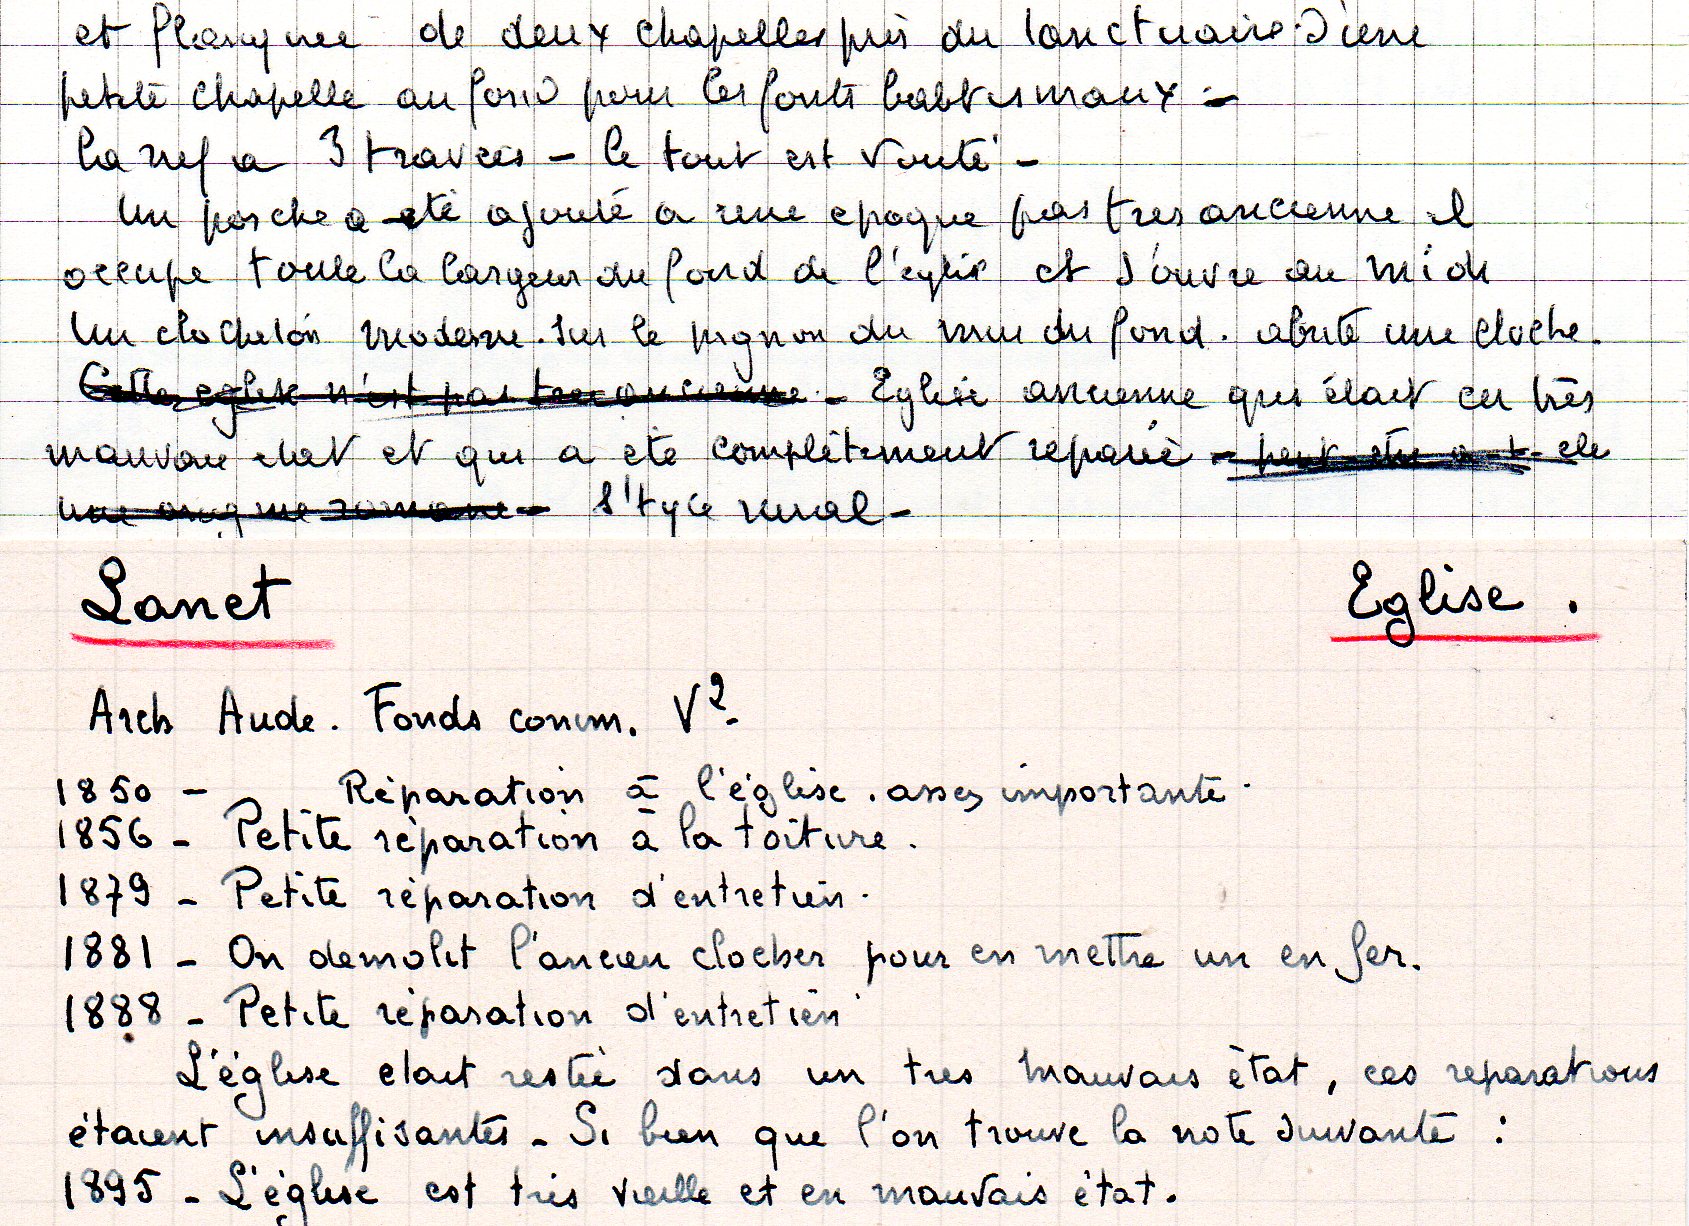 et flanquee de deux chapelles près du sanctuaire. D'une
petite chapelle au fond pour les fonts babtismaux -
La nef a 3 travees - le tout est vouté -
Un porche a eté ajouté a une epoque pas tres ancienne il
occupe toute la largeur du fond de l'église et s'ouvre au midi
Un clocheton moderne. sur le pignon du mur du fond. abrite une cloche.
Cette eglise n'est pas tres ancienne - Eglise ancienne qui était en très
mauvais etat et qui a eté complètement reparée - peut etre a-t-elle
une origine romane - style rural -
Lanet Eglise.
Arch Aude. Fonds comm. V2.
1850 - Réparation à l'église. assez importante.
1856 - Petite réparation à la toiture.
1879 - Petite réparation d'entretien.
1881 - On demolit l'ancien clocher pour en mettre un en fer.
1888 - Petite réparation d'entretien
L'église etait restée dans un tres mauvais état, ces reparations
étaient insuffisantes - Si bien que l'on trouve la note suivante :
1895 - L'église est très vieille et en mauvais état.